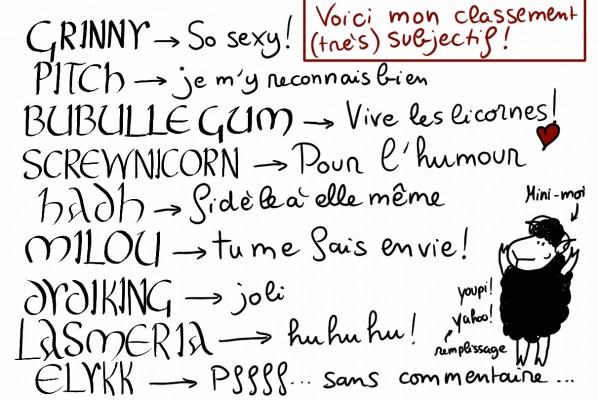 Voici mon classement
(très) subjectif!
GRINNY → So sexy!
PITCh → je m'y reconnais bien
BUBULLE GUM → Vive les licornes!
SCREWNICORN → Pour l'humour
hADh → fidèle à elle même
MILOU → tu me fais envie!
ARAIKING → joli
LASMERIA → hu hu hu!
ELYKK → Pffff... sans commentaire...
Mini-moi
youpi!
Yahoo!
remplissage